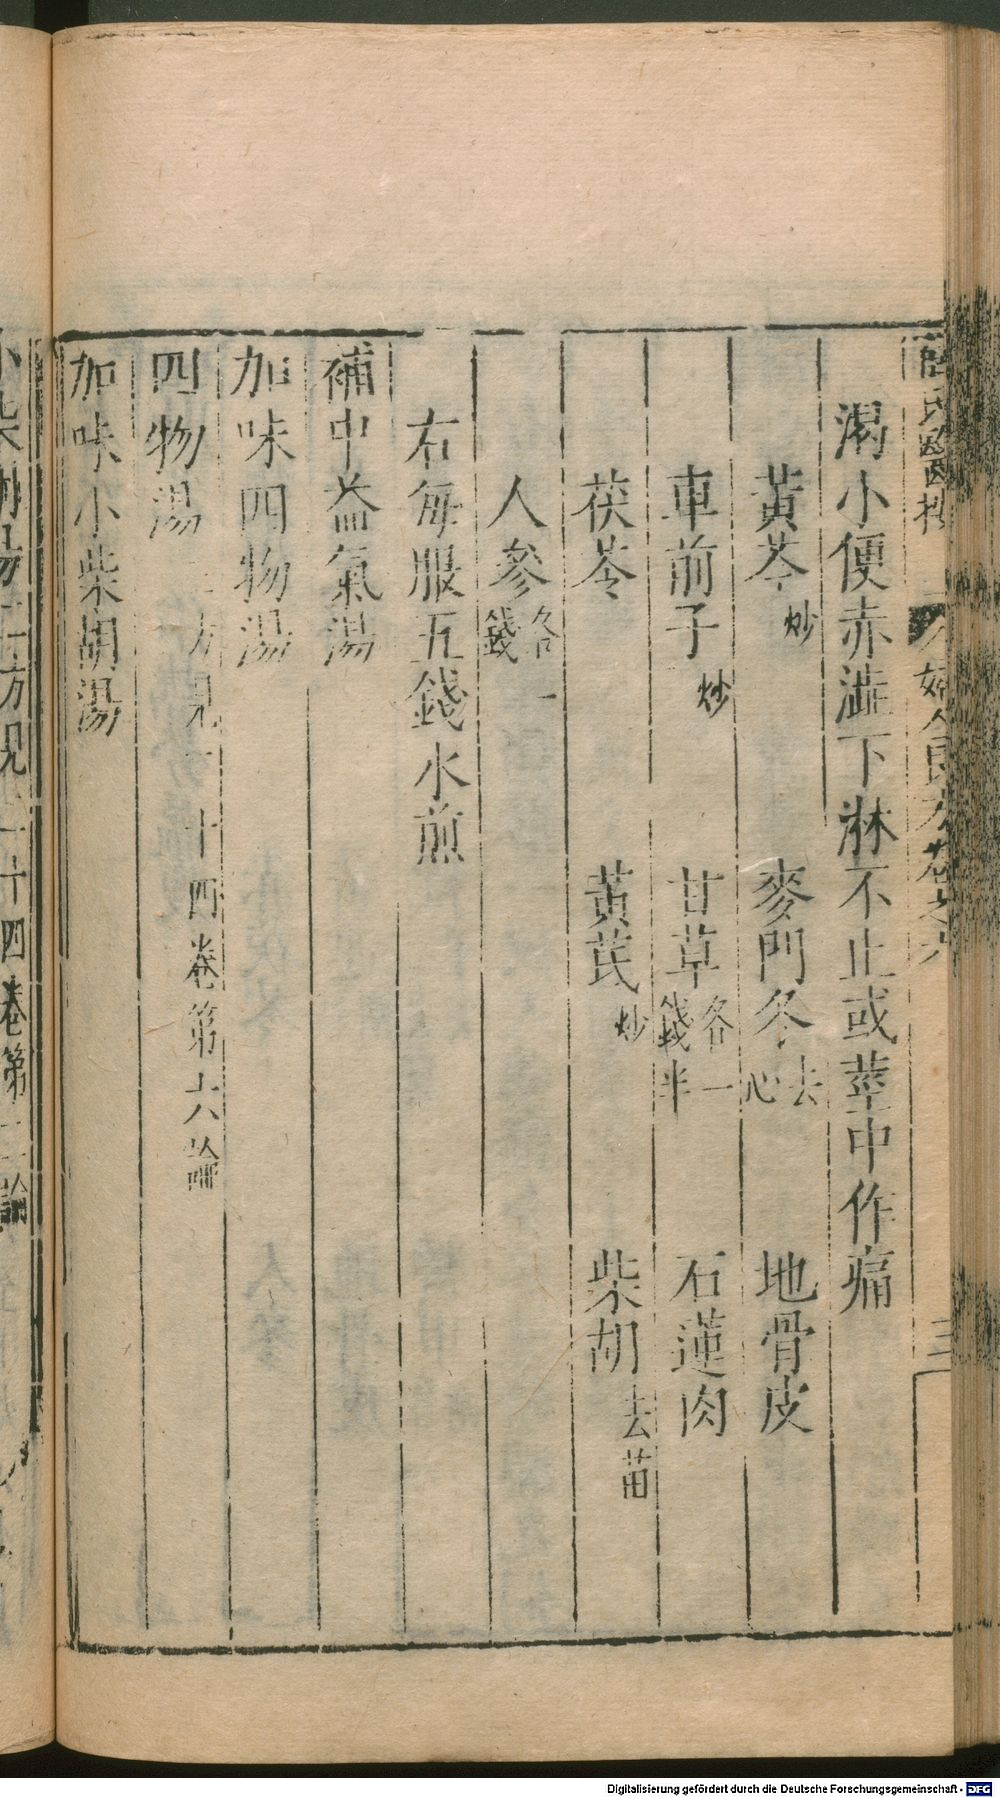 薛氏醫按 婦人良方卷之六 三
渴小便赤澁下淋不止或莖中作痛
黃芩炒 麥門冬去心 地骨皮
車前子炒 甘草各一錢半 石蓮肉
茯苓 黃芪炒 柴胡去苗
人參各一錢
右每服五錢水煎
補中益氣湯
加味四物湯
四物湯 三方見二十四卷第六論
加味小柴胡湯
小柴胡湯二方見二十四卷第二論
Digitalisierung gefördert durch die Deutsche Forschungsgemeinschaft - DFG